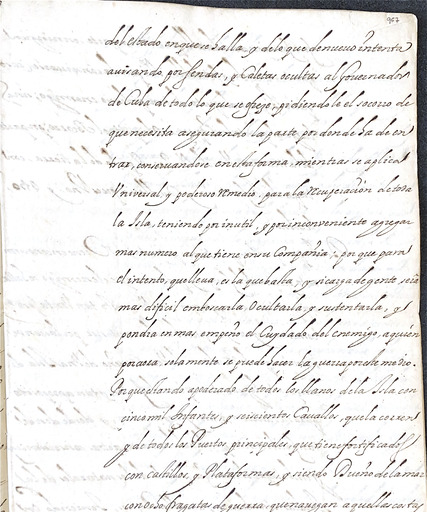 957
del estado en que se halla, y delo que denuevo intenta
auisando por sendas, y Caletas ocultas al Gouernador
de Cuba de todo lo que se ofreze, pidiendole el socorro de
que necesita asegurando la parte por donde ha de en
trar, conseruandose en esta forma, mientras se aplica el
Vniversal y poderoso remedio para la recuperaçion de toda
la Isla, teniendo por inutil, y por inconueniente agregar
mas numero al que tiene en su Compañia; porque para
el intento, que lleua, es la que basta, y si carga de gente sería
mas dificil emboscarla, Ocultarla, y sustentarla, y
pondria en mas empeño el Cuydado del enemigo, a quien
por aora, solamente se puede hacer la guerra por este medio.
Porque estando apoderado de todos los llanos de la Isla con
cinco mil Infantes, y seiscientos Cauallos, que la corren
y de todos los Puertos principales, que tiene fortificados
con Castillos, y Plataformas, y siendo Dueño de la mar
con ocho fragatas de guerra, que nauegan aquellas costas